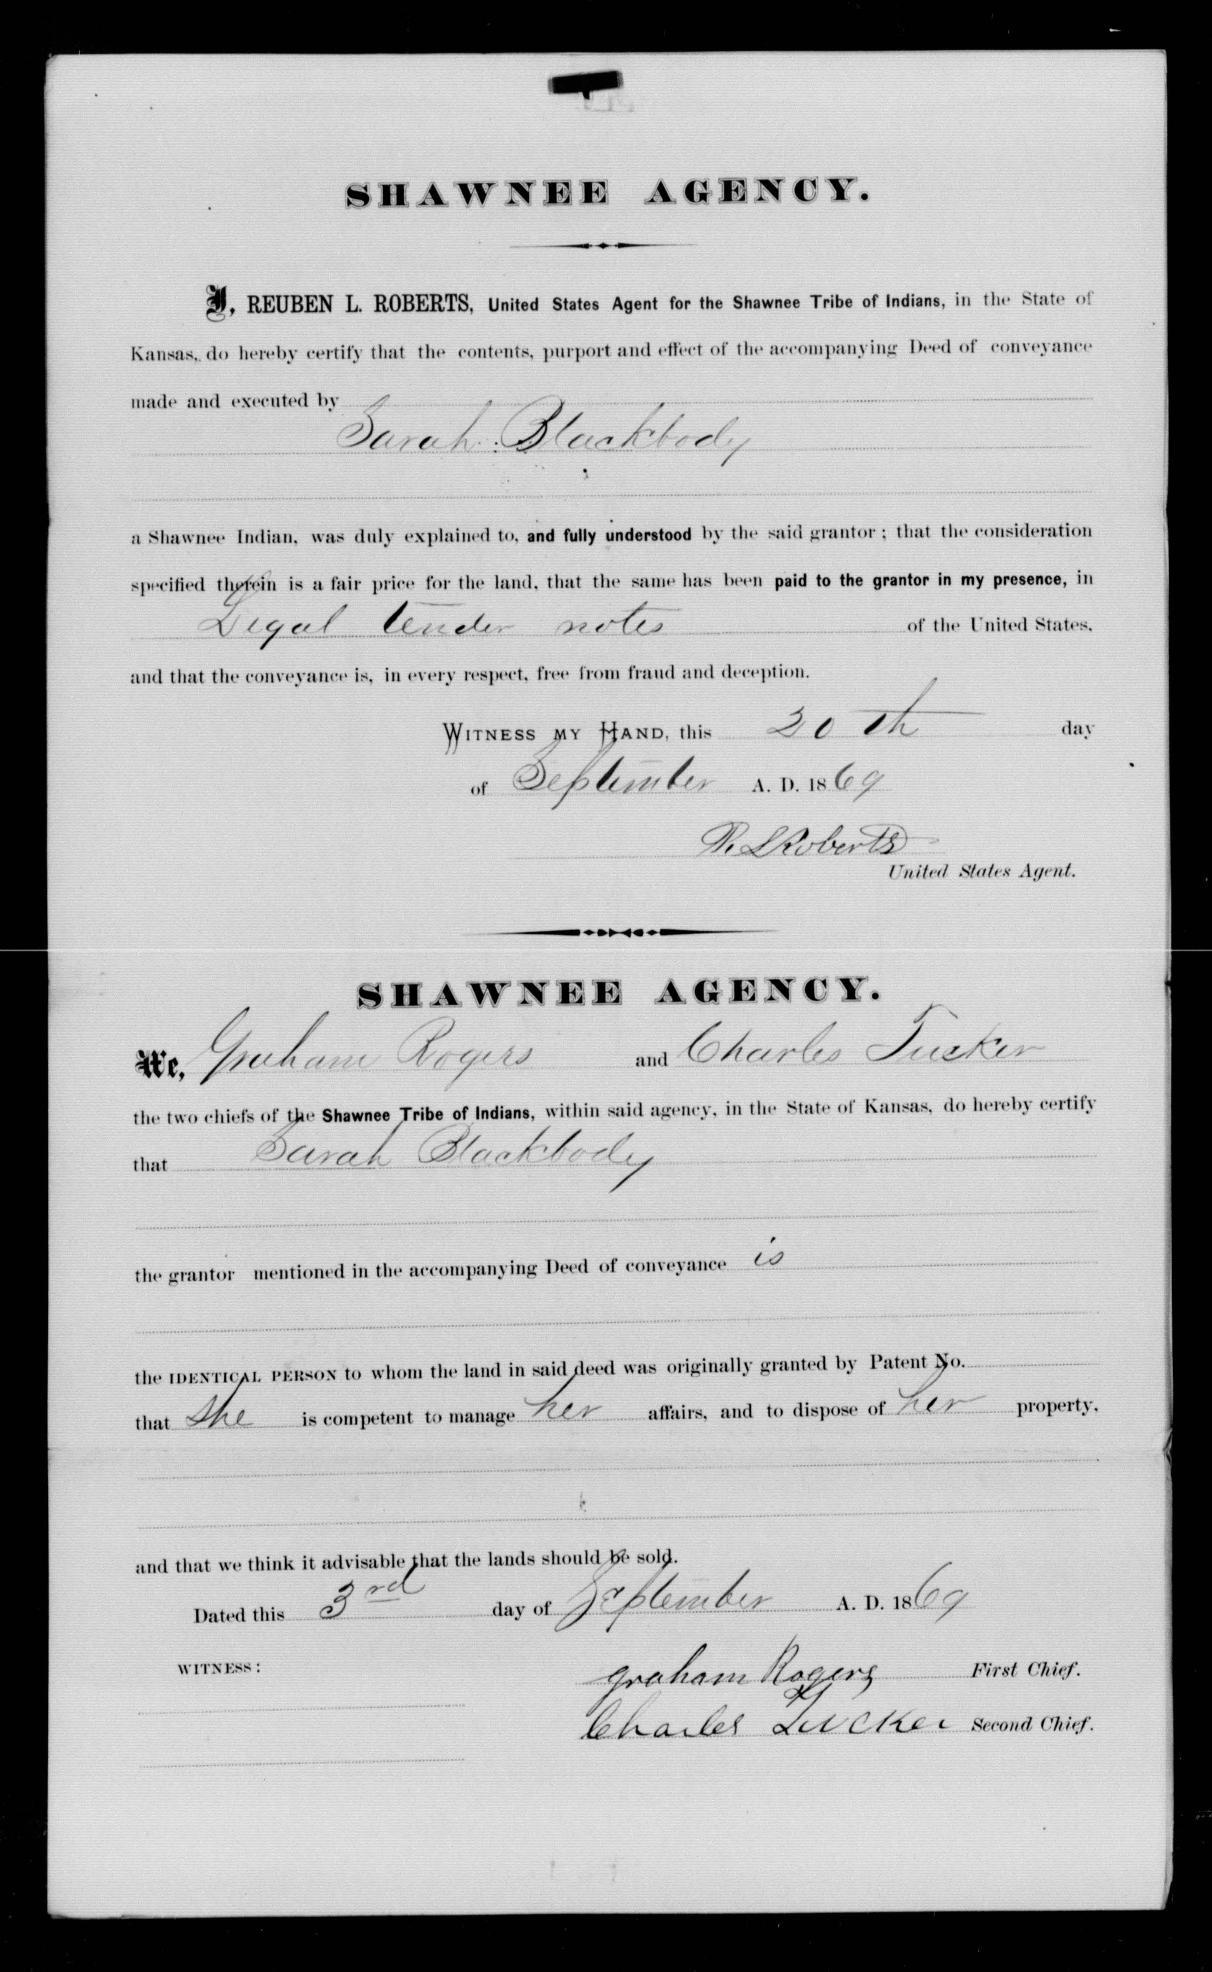 SHAWNEE AGENCY.
I, REUBEN L. ROBERTS, United States Agent for the Shawnee Tribe of Indians, in the State of
Kansas, do hereby certify that the contents, purport and effect of the accompanying Deed of conveyance
made and executed by
Sarah Blackbody
a Shawnee Indian, was duly explained to, and fully understood by the said grantor; that the consideration
specified therein is a fair price for the land, that the same has been paid to the grantor in my presence, in
Legal tender notes of the United States,
and that the conveyance is, in every respect, free from fraud and deception.
WITNESS MY HAND, this 20th day
of September A. D. 1869
R. L Roberts
United States Agent.
SHAWNEE AGENCY.
We, Graham Rogers and Charles Tucker
the two chiefs of the Shawnee Tribe of Indians, within said agency, in the State of Kansas, do hereby certify
that Sarah Blackbody
the grantor mentioned in the accompanying Deed of conveyance is
the IDENTICAL PERSON to whom the land in said deed was originally granted by Patent No.
that she is competent to manage her affairs, and to dispose of her property,
and that we think it advisable that the lands should be sold.
Dated this 3rd day of September A. D. 1869
WITNESS: graham Rogers First Chief.
Charles Tucker Second Chief.